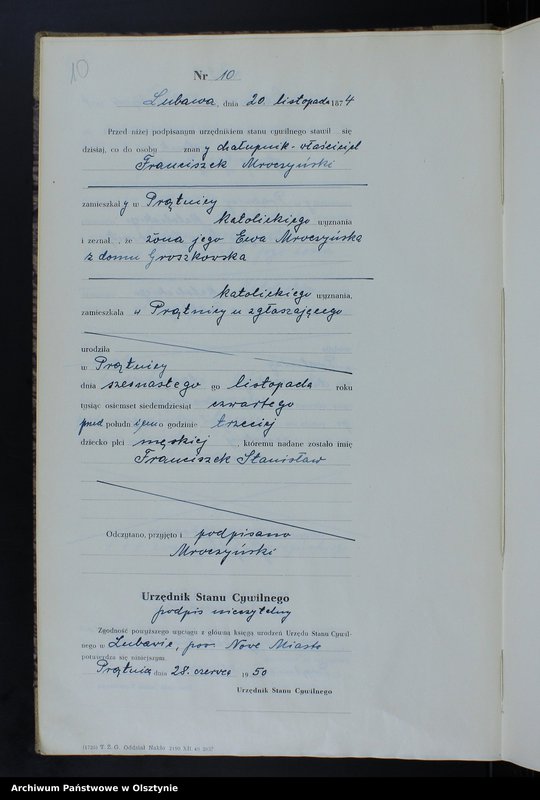 10
Nr 10
Lubawa, dnia 20 listopada 1874
Przed niżej podpisanym urzędnikiem stanu cywilnego stawił się
dzisiaj, co do osoby znany chałupnik-właściciel
Franciszek Mroczyński
zamieszkały w Prątnicy
katolickiego wyznania
i zeznał, że żona jego Ewa Mroczyńska
z domu Groszkowska
katolickiego wyznania,
zamieszkała w Prątnicy u zgłaszającego
urodziła
w Prątnicy
dnia szesnastego go listopada roku
tysiąc osiemset siedemdziesiąt czwartego
przed południem o godzinie trzeciej
dziecko płci męskiej, któremu nadane zostało imię
Franciszek Stanisław
Odczytano, przyjęto i podpisano
Mroczyński
Urzędnik Stanu Cywilnego
podpis nieczytelny
Zgodność powyższego wyciągu z główną księgą urodzeń Urzędu Stanu Cywil-
nego w Lubawie, pow. Nowe Miasto
potwierdza się niniejszym
Prątnica dnia 28. czerwca 1950
Urzędnik Stanu Cywilnego
T. Z. G. Oddział Nakło
Archiwum Państwowe w Olsztynie